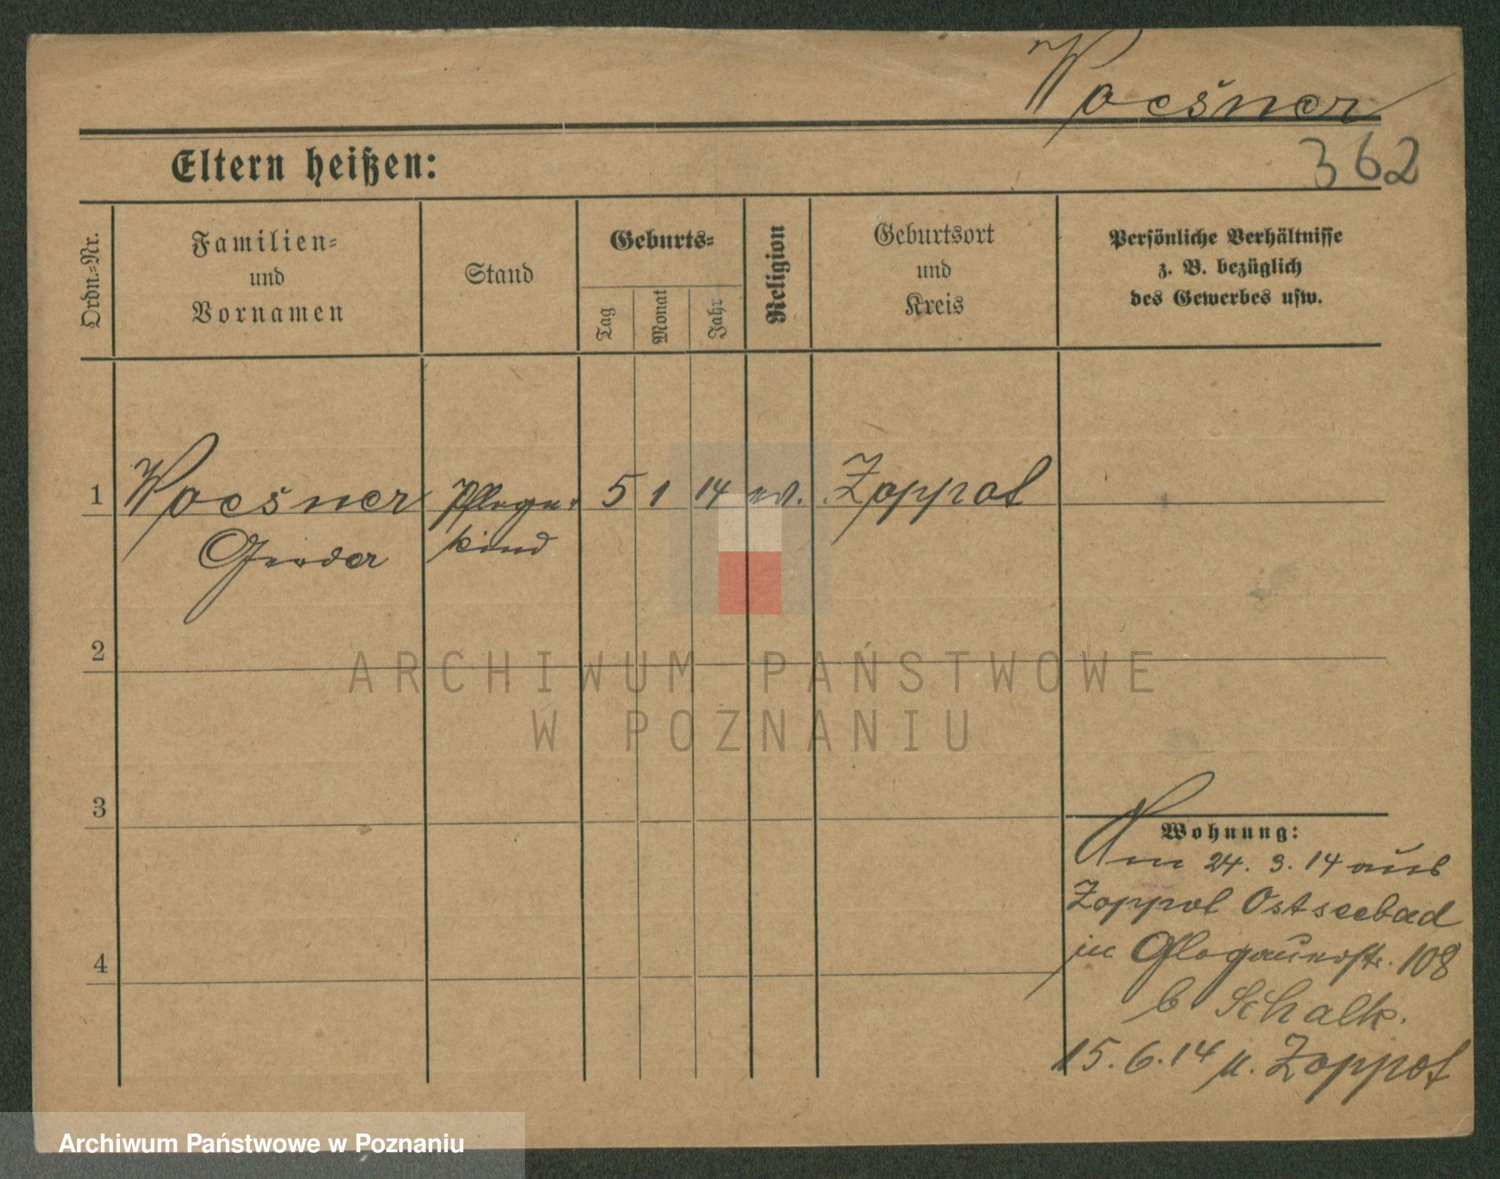 Woesner
362
Eltern heißen:
Ordn.=Nr.
Familien=
und
Vornamen
Stand
Geburts=
Tag
Monat
Jahr
Religion
Geburtsort
und
Kreis
Persönliche Verhältnisse
z. B. bezüglich
des Gewerbes usw.
1 Woesner Pflege- 5 1 14 ev. Zoppot
kind
2
3
4
Wohnung:
Am 24. 3. 14 aus
Zoppot Ostseebad
in Glogauerstr. 108
b Schalk.
15. 6. 14 n. Zoppot
ARCHIWUM PAŃSTWOWE
W POZNANIU
Archiwum Państwowe w Poznaniu